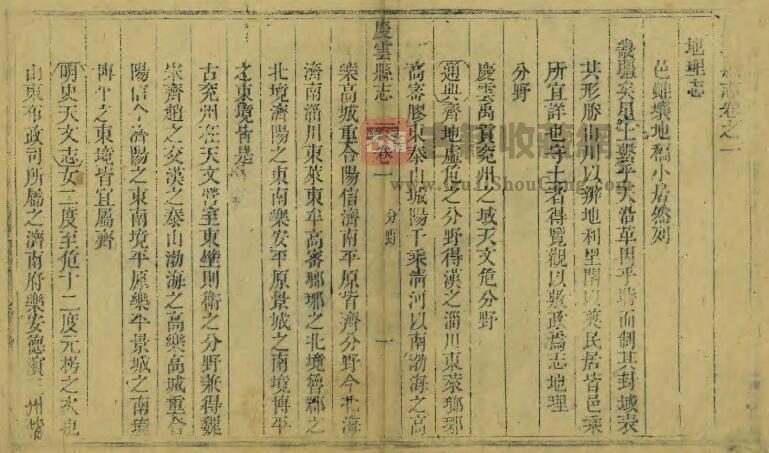 縣志卷之一
地理志
邑雖壤地褊小居然列
畿疆矣星土繫乎天沿革因乎時而制其封域表
其形勝山川以辨地利里閈以奠民居皆邑乘
所宜詳也守土者得覽觀以敷政焉志地理
分野
慶雲禹貢兗州之域天文危分野
通典齊地虛危之分野得漢之淄川東萊瑯琊
高密膠東泰山城陽千乘清河以南渤海之高
慶雲縣志 卷一 分野 一
樂高城重合陽信濟南平原皆齊分野今北海
濟南淄川東萊東牟高密瑯琊之北境魯郡之
北境濟陽之東南樂安平原景城之南境博平
之東境皆是
古兗州在天文營室東壁則衛之分野兼得魏
宋齊趙之交漢之泰山渤海之高樂高城重合
陽信今濟陽之東南境平原樂平景城之南境
博平之東境皆宜屬齊
明史天文志女二度至危十二度元枵之次也
山東布政司所屬之濟南府樂安德濱三州皆
書籍收藏網
www.GujiShouCang.com